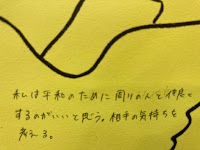 私は平和のために周りの人と仲良く
するのがいいと思う。相手の気持ちを
考える。